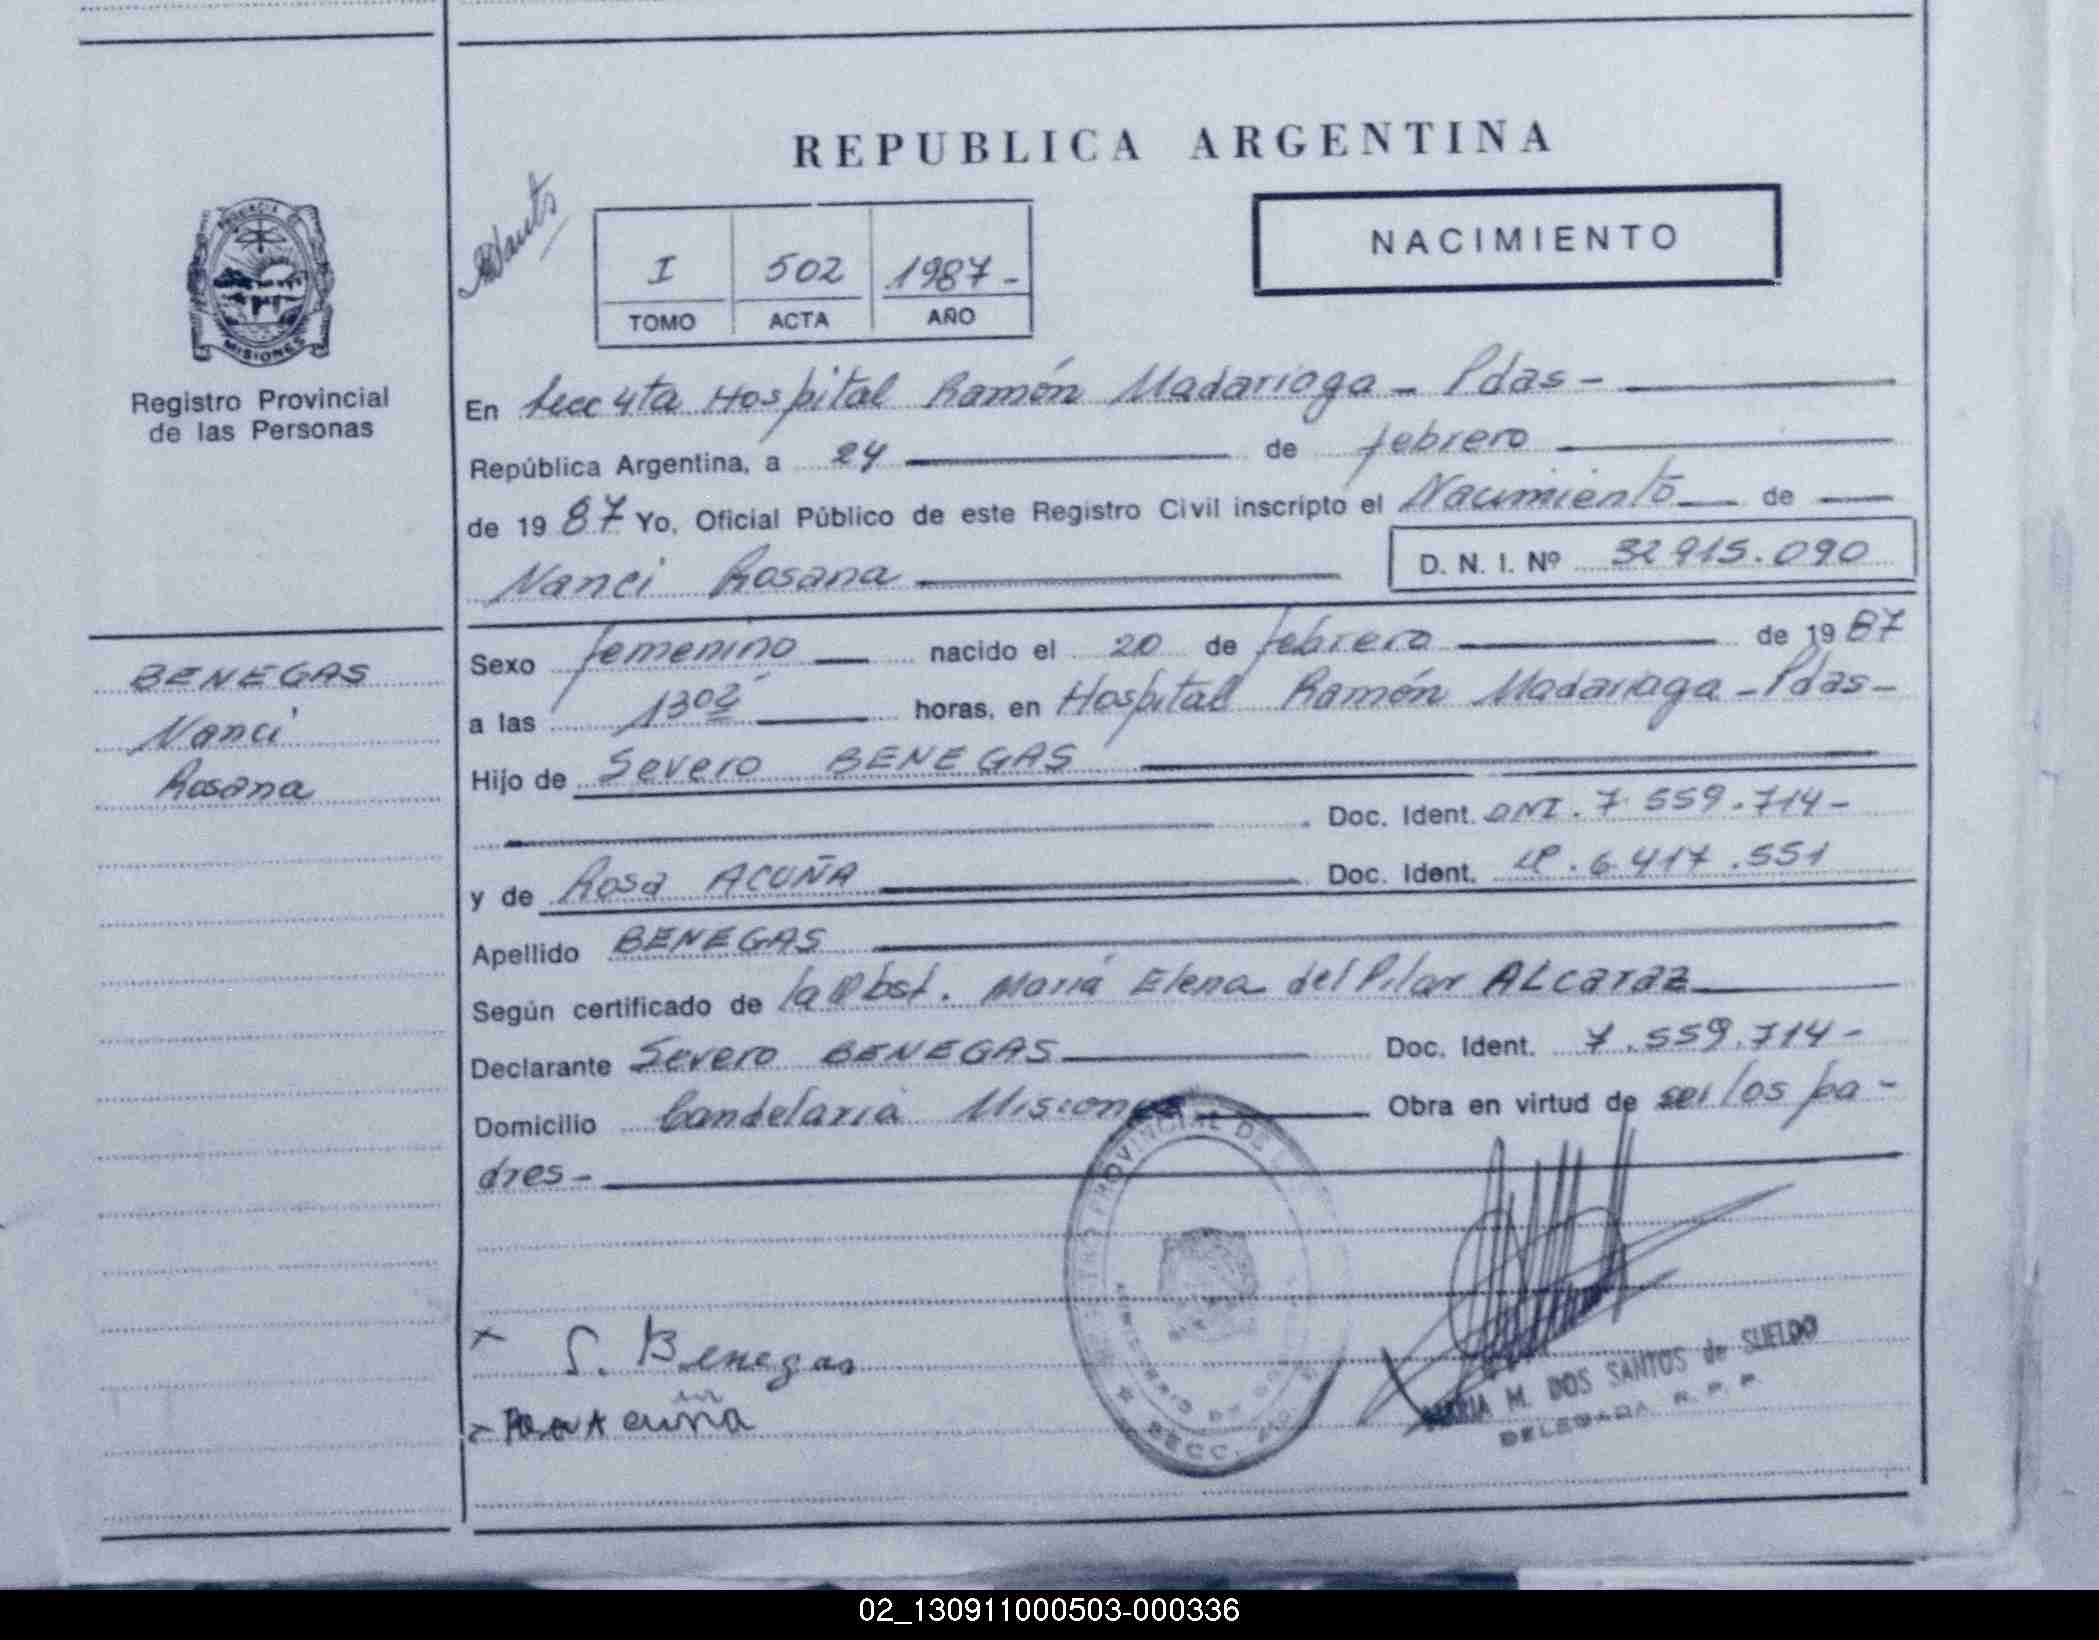 REPUBLICA ARGENTINA
NACIMIENTO
I 502 1987-
TOMO ACTA AÑO
PROVINCIA DE
MISIONES
Registro Provincial
de las Personas
BENEGAS
Nanci
Rosana
En Secc 4ta Hospital Ramón Madariaga - Pdas -
República Argentina, a 24 de febrero
de 19 87 Yo, Oficial Público de este Registro Civil inscripto el Nacimiento de
Nanci Rosana D. N. I. Nº 32 915.090
Sexo femenino nacido el 20 de febrero de 19 87
a las 13 horas, en Hospital Ramón Madariaga - Pdas -
Hijo de Severo BENEGAS
Doc. Ident. DNI. 7 559.714-
y de Rosa ACUÑA Doc. Ident. 6.417.551
Apellido BENEGAS
Según certificado de la Obst. María Elena del Pilar ALcaraz
Declarante Severo BENEGAS Doc. Ident. 7.559.714-
Domicilio Candelaria Misiones Obra en virtud de ser los pa-
dres-
PROVINCIAL DE
SECC.
S. Benegas
MARIA M. DOS SANTOS de SUELDO
DELEGADA R. P. P.
02_130911000503-000336